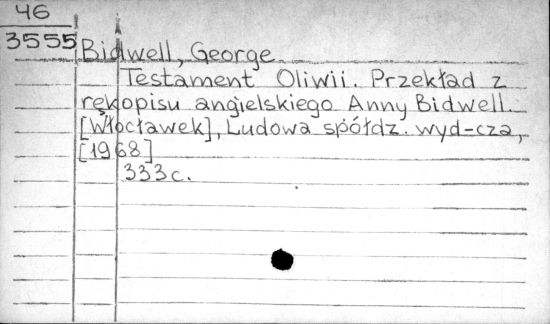 46
3555
Bidwell, George
Testament Oliwii. Przekład z
rękopisu angielskiego Anny Bidwell.
[Włocławek], Ludowa spółdz. wyd-cza,
[1968]
333c.